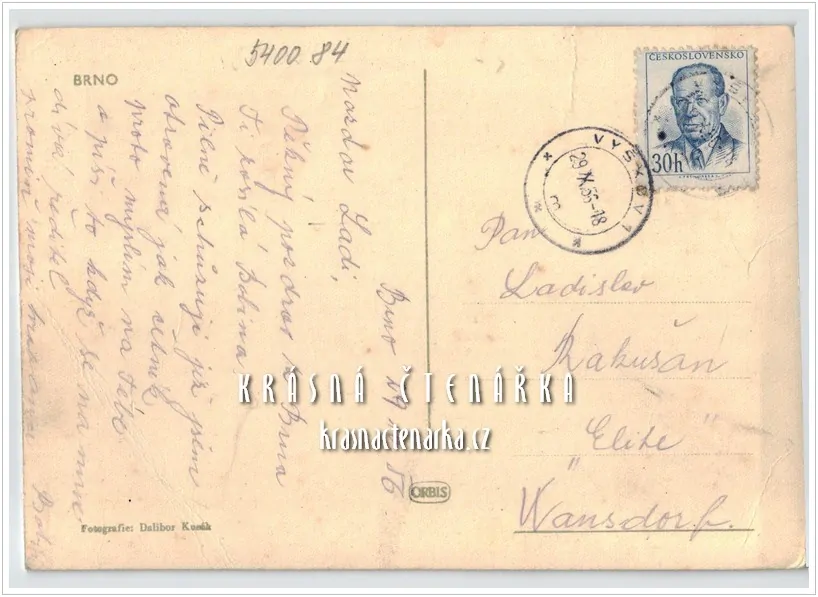 5400 84
BRNO
Brno 29 56
Nazdar Ladi,
Pěkný pozdrav z Brna
Ti posílá Bobina
Pilně schůzuji již jsem
otrávená jak
proto myslím na tebe
a píši to když se na mne
dívá ředitel
promiň moji
Fotografie: Dalibor Kusák
ORBIS
ČESKOSLOVENSKO
30h
VYŠKOV 1
29.IX.56-18
Pan
Ladislav
Rakušan
„Elite"
Warnsdorf.
KRÁSNÁ ČTENÁŘKA
krasnactenarka.cz